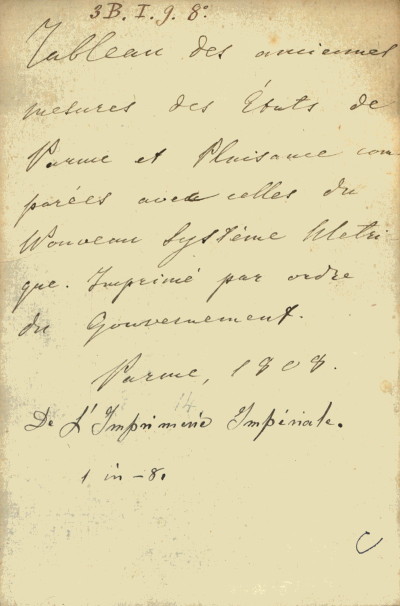 3B. I. 9. 8°.
Tableau des anciennes
mesures des États de
Parme et Plaisance com
parées avec celles du
Nouveau Système Metri
que. Imprimé par ordre
du Gouvernement.
Parme, 1808.
14
De L'Imprimerie Impériale.
1 in-8.
C